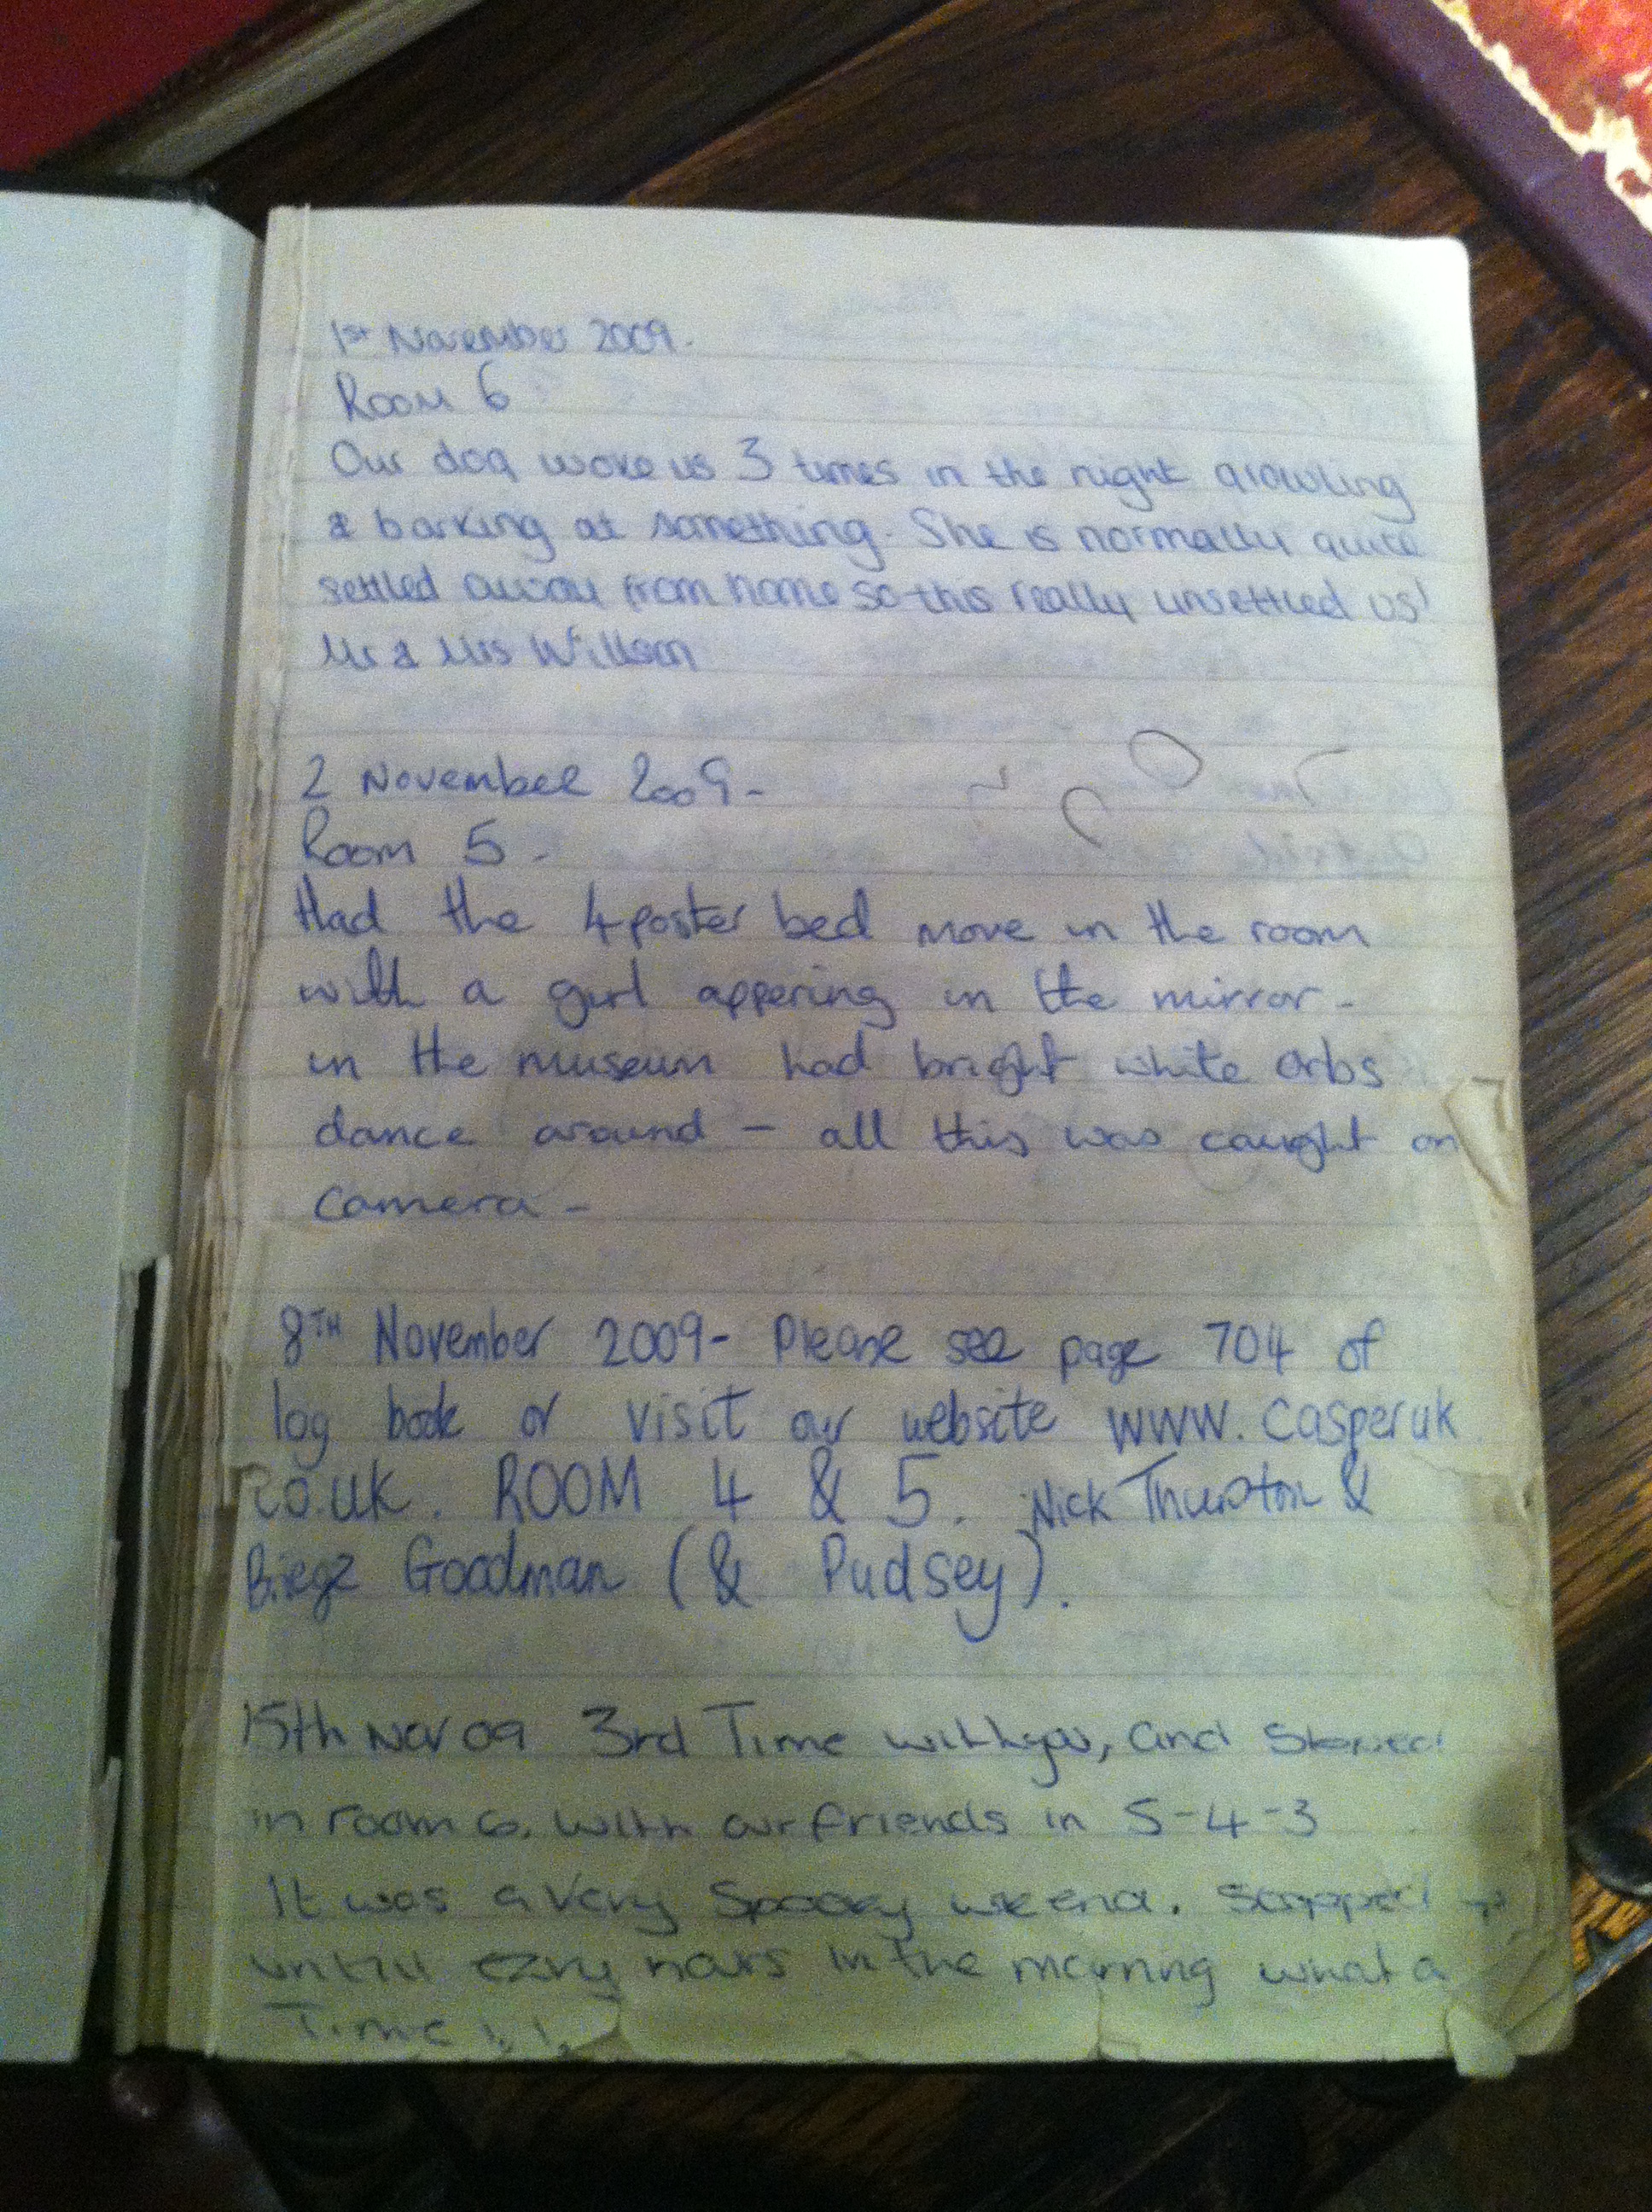 1st November 2009.
Room 6
Our dog woke us 3 times in the night growling
& barking at something. She is normally quite
settled away from home so this really unsettled us!
Mr & Mrs Willson
2 November 2009-
Room 5-
Had the 4 poster bed move in the room
with a girl appering in the mirror-
in the museum had bright white orbs
dance around - all this was caught on
camera-
8TH November 2009- Please see page 704 of
log book or visit our website www.casperuk
.co.uk. ROOM 4 & 5. Nick Thurston &
Goodman (& Pudsey).
15th Nov 09 3rd Time with you, and Stayed
in room 6. with our friends in 5-4-3
It was a very Spooky weend.
untill hours in the morning what a
Time !!